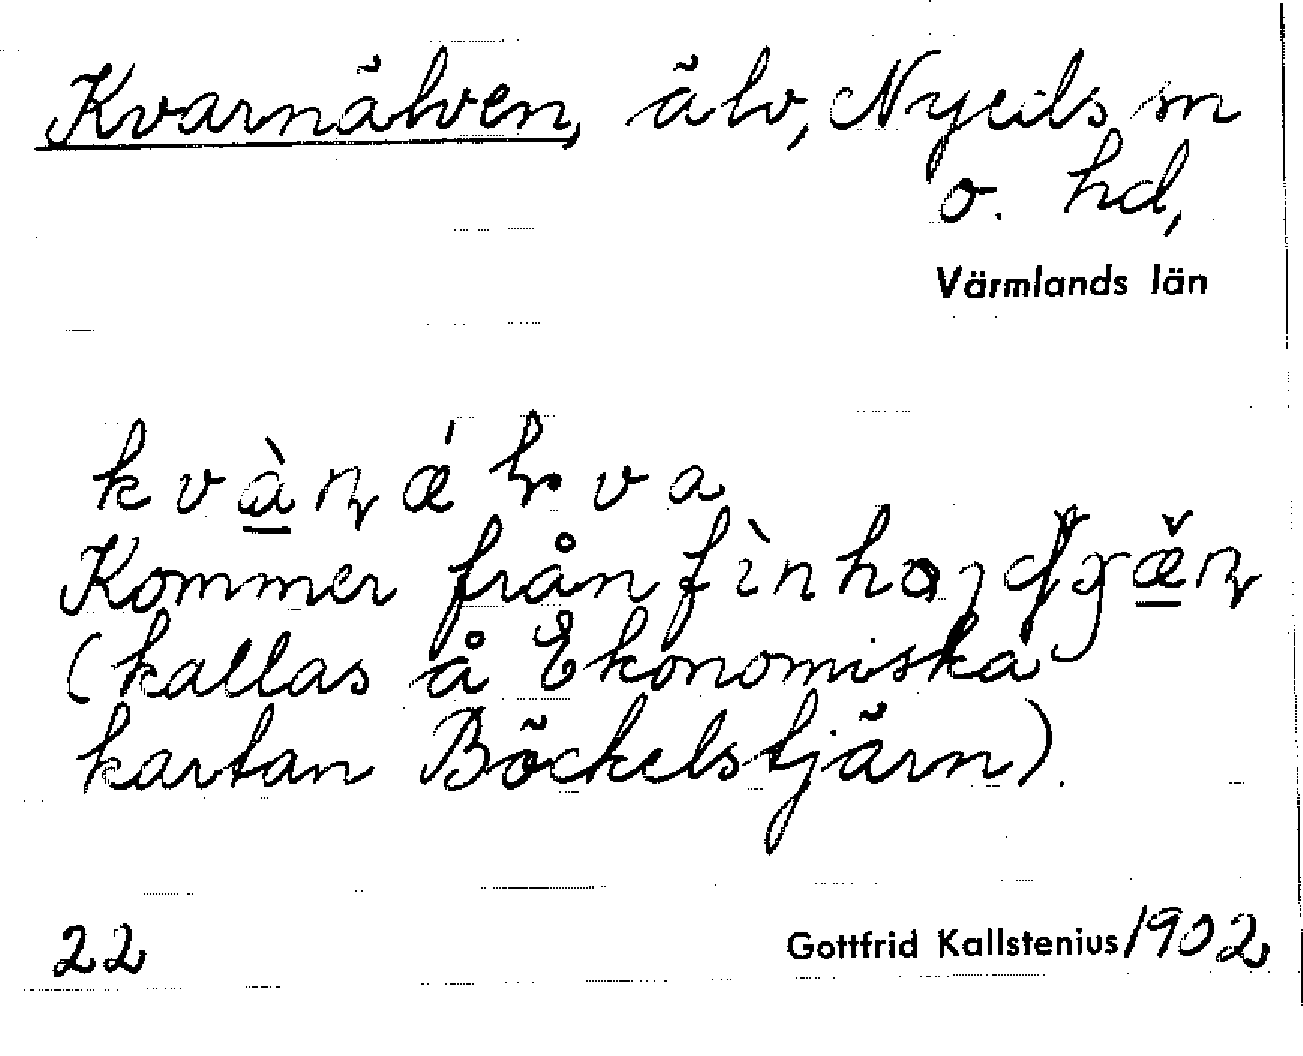 Kvarnälven, älv, Nyeds sn
o. hd,
Värmlands län
Kommer från
(kallas å Ekonomiska
kartan Böckelstjärn).
22 Gottfrid Kallstenius 1902